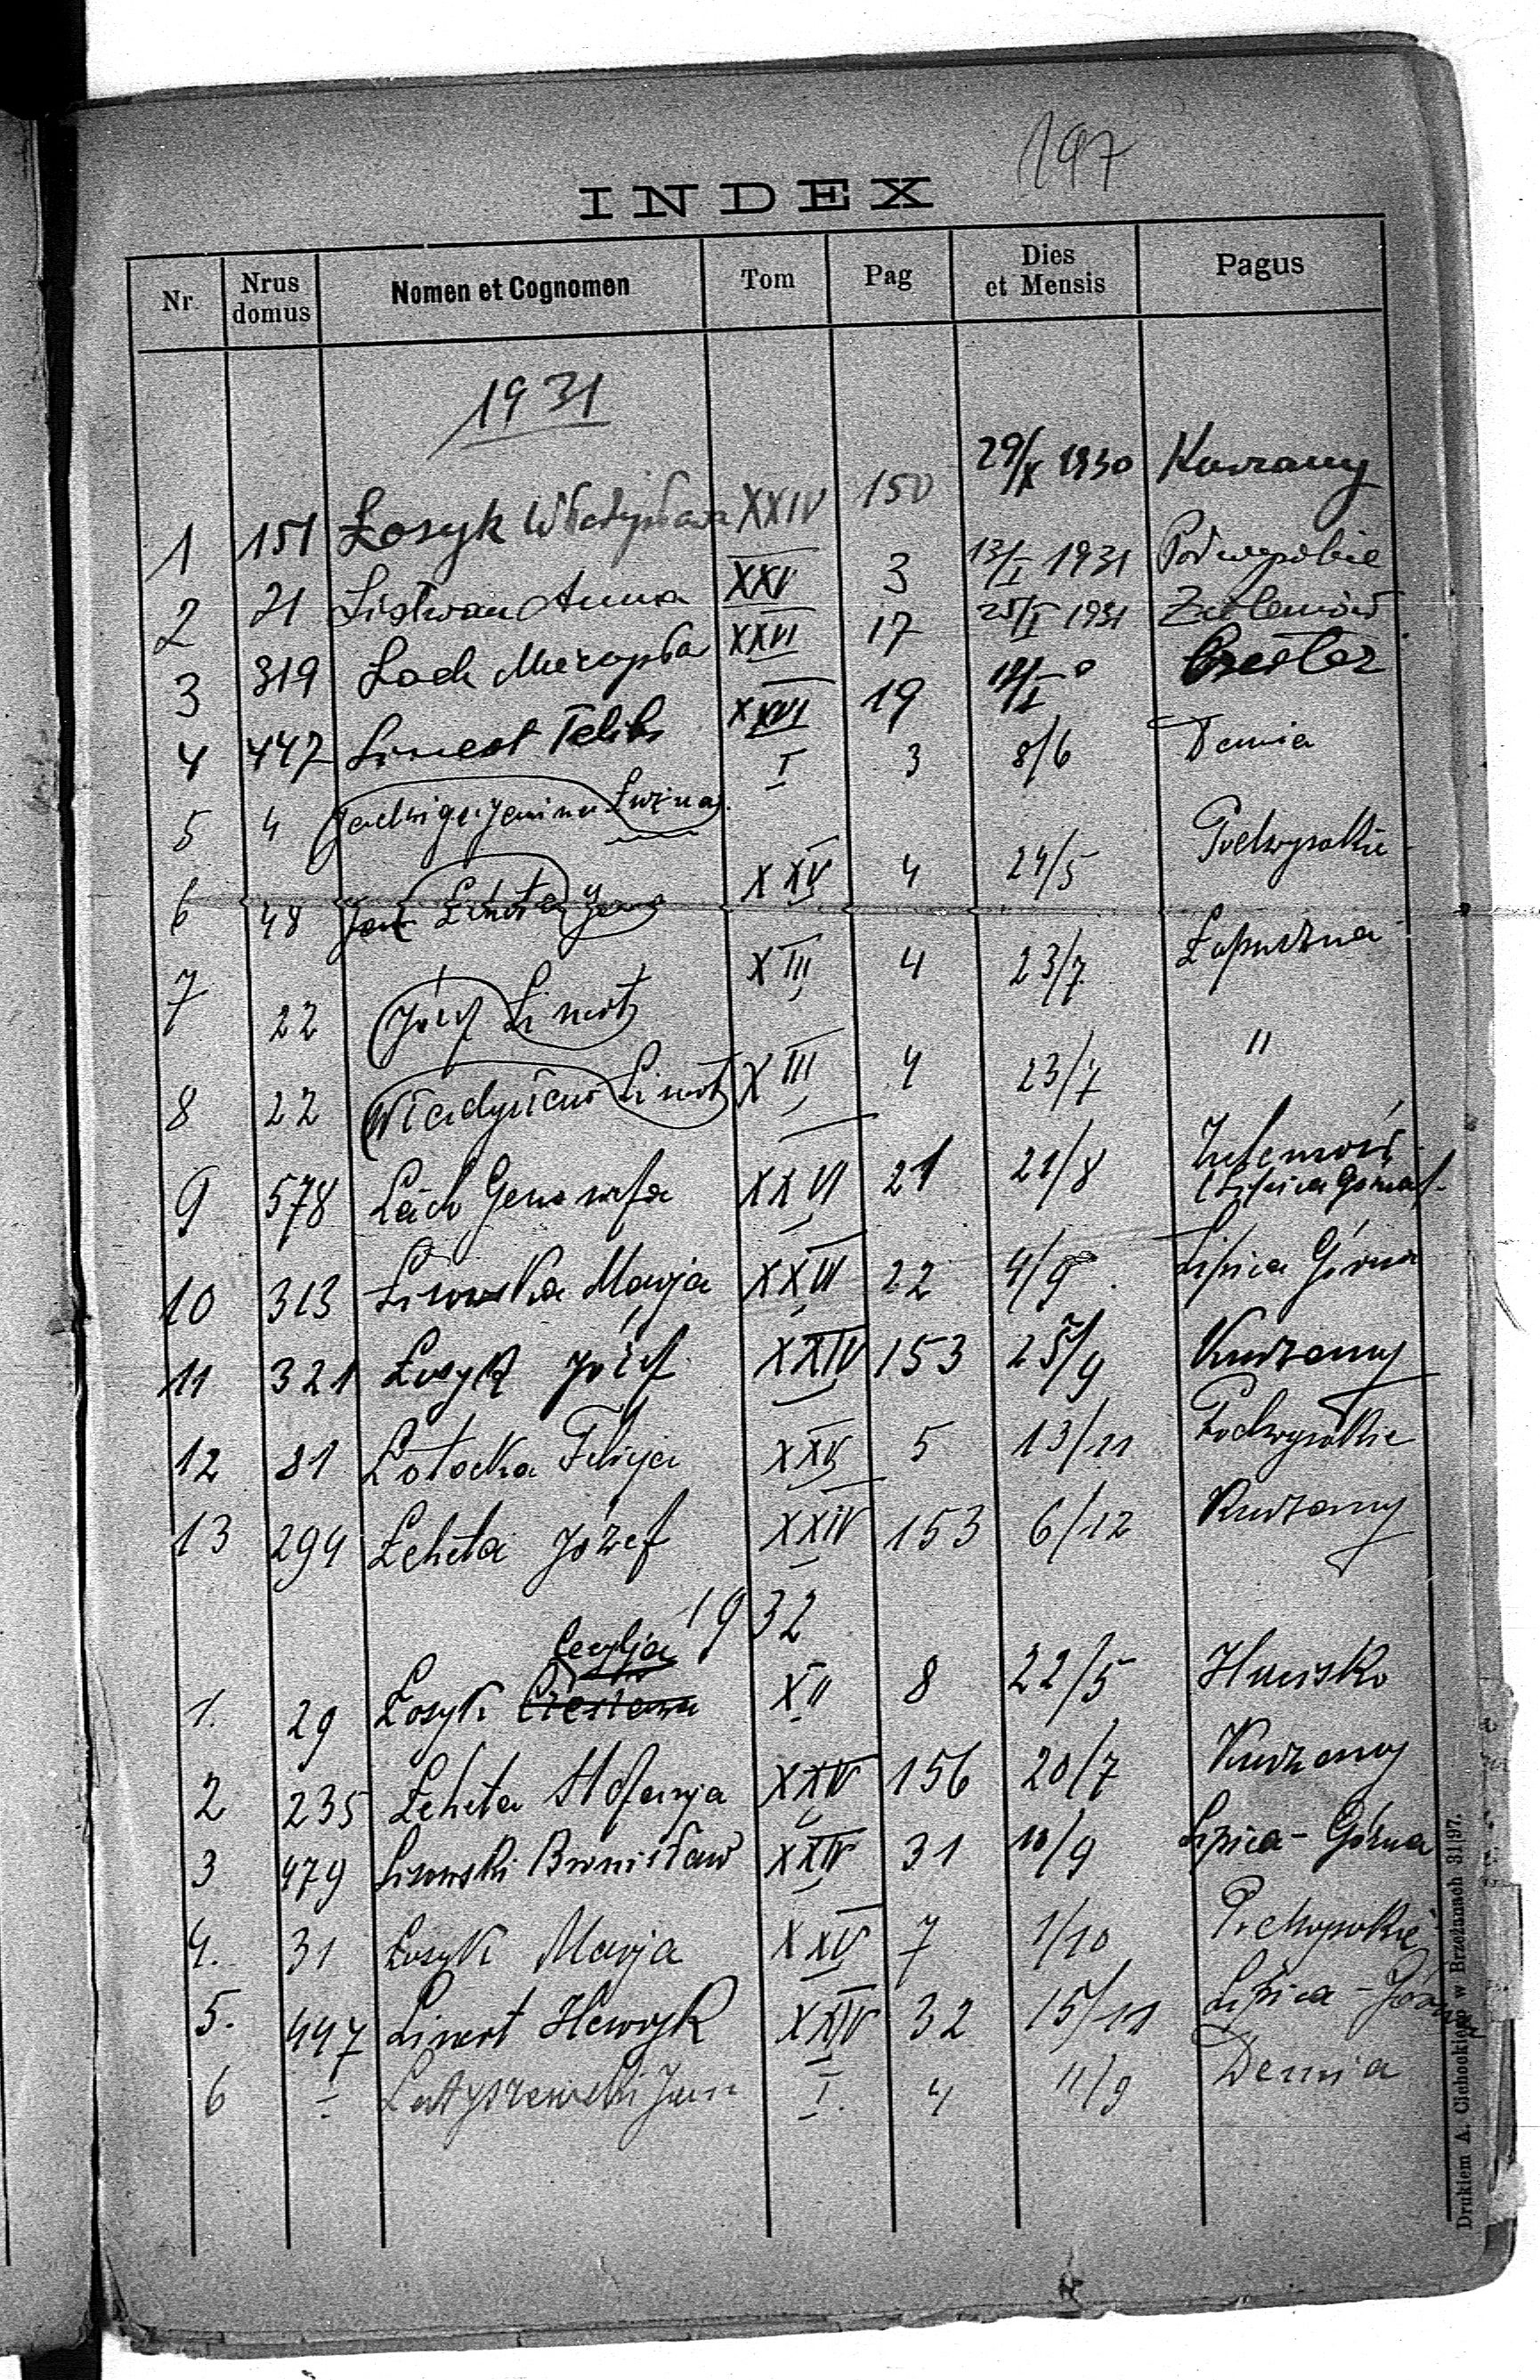 197
INDEX
Nr. Nrus domus Nomen et Cognomen Tom Pag Dies et Mensis Pagus
1931
1 151 Łosyk Władysława XXIV 150 29/X 1930 Kurzany
2 21 Listwan Anna XXV 3 13/I 1931 Podwysokie
3 319 Łach XXVI 17 25/I 1931
4 447 Linert XXVI 19
5 4 Jadwiga Janina I 3 8/6 Demia
6 48 Jan Łeheta XXV 4 24/5 Podwysokie
7 22 Józef Linert XIII 4 23/7 Łopuszna
8 22 Władysław Linert XIII 4 23/7 "
9 578 Łach Genowefa XXVI 21 21/8
(Lipica Górna)
10 313 Lisowska Marja XXVI 22 4/9 Lipica Górna
11 321 Łosyk Józef XXIV 153 25/9 Kurzany
12 81 Łotocka Felicja XXV 5 13/11 Podwysokie
13 294 Łeheta Józef XXIV 153 6/12 Kurzany
1932
Cecylja
1. 29 Łosyk Czesława XII 8 22/5 Hucisko
2 235 Łeheta Stefanja XXIV 156 20/7 Kurzany
3 479 Lisowski Bronisław XXIV 31 10/9 Lipica - Górna
4. 31 Łosyk Marja XXV 7 1/10 Podwysokie
5. 447 Linert Henryk XXIV 32 15/11 Lipica - Górna
6 - Łatyszewski Jan I. 4 11/9 Demia
Drukiem A. Cichockiego w Brzeżanach 31|97.